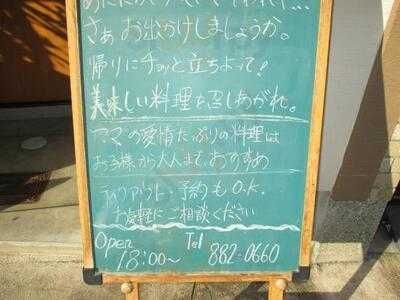 さぁ お出かけしましょうか。
帰りにチョッと立ちよって!
美味しい料理を召しあがれ。
ママの愛情たっぷりの料理は
お子様から大人まで、おすすめ
テイクアウト・予約もO.K.
お気軽にご相談ください
Open Tel
18:00~ 882-0660